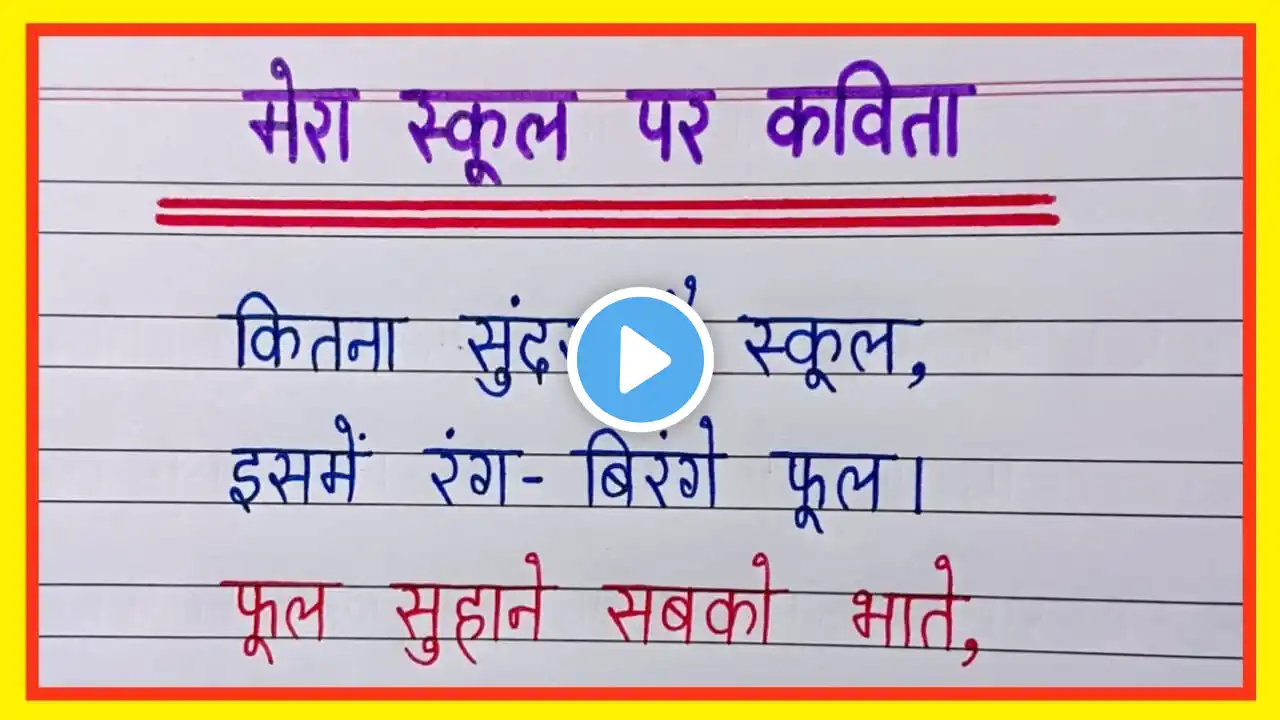 मेरा स्कूल पर कविता
कितना सुंदर स्कूल,
इसमें रंग-बिरंगे फूल।
फूल सुहाने सबको भाते,